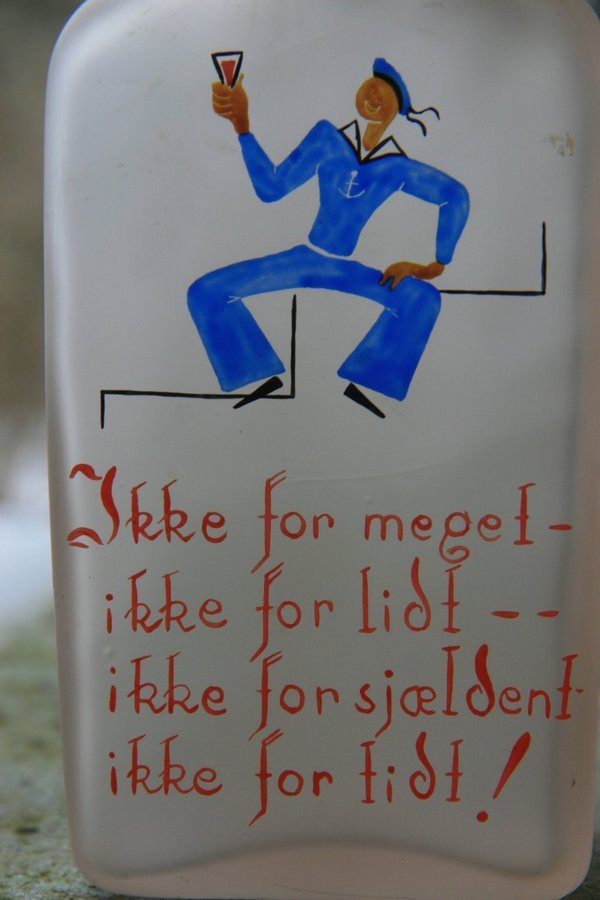 Ikke for meget -
ikke for lidt --
ikke for sjældent -
ikke for tidt!